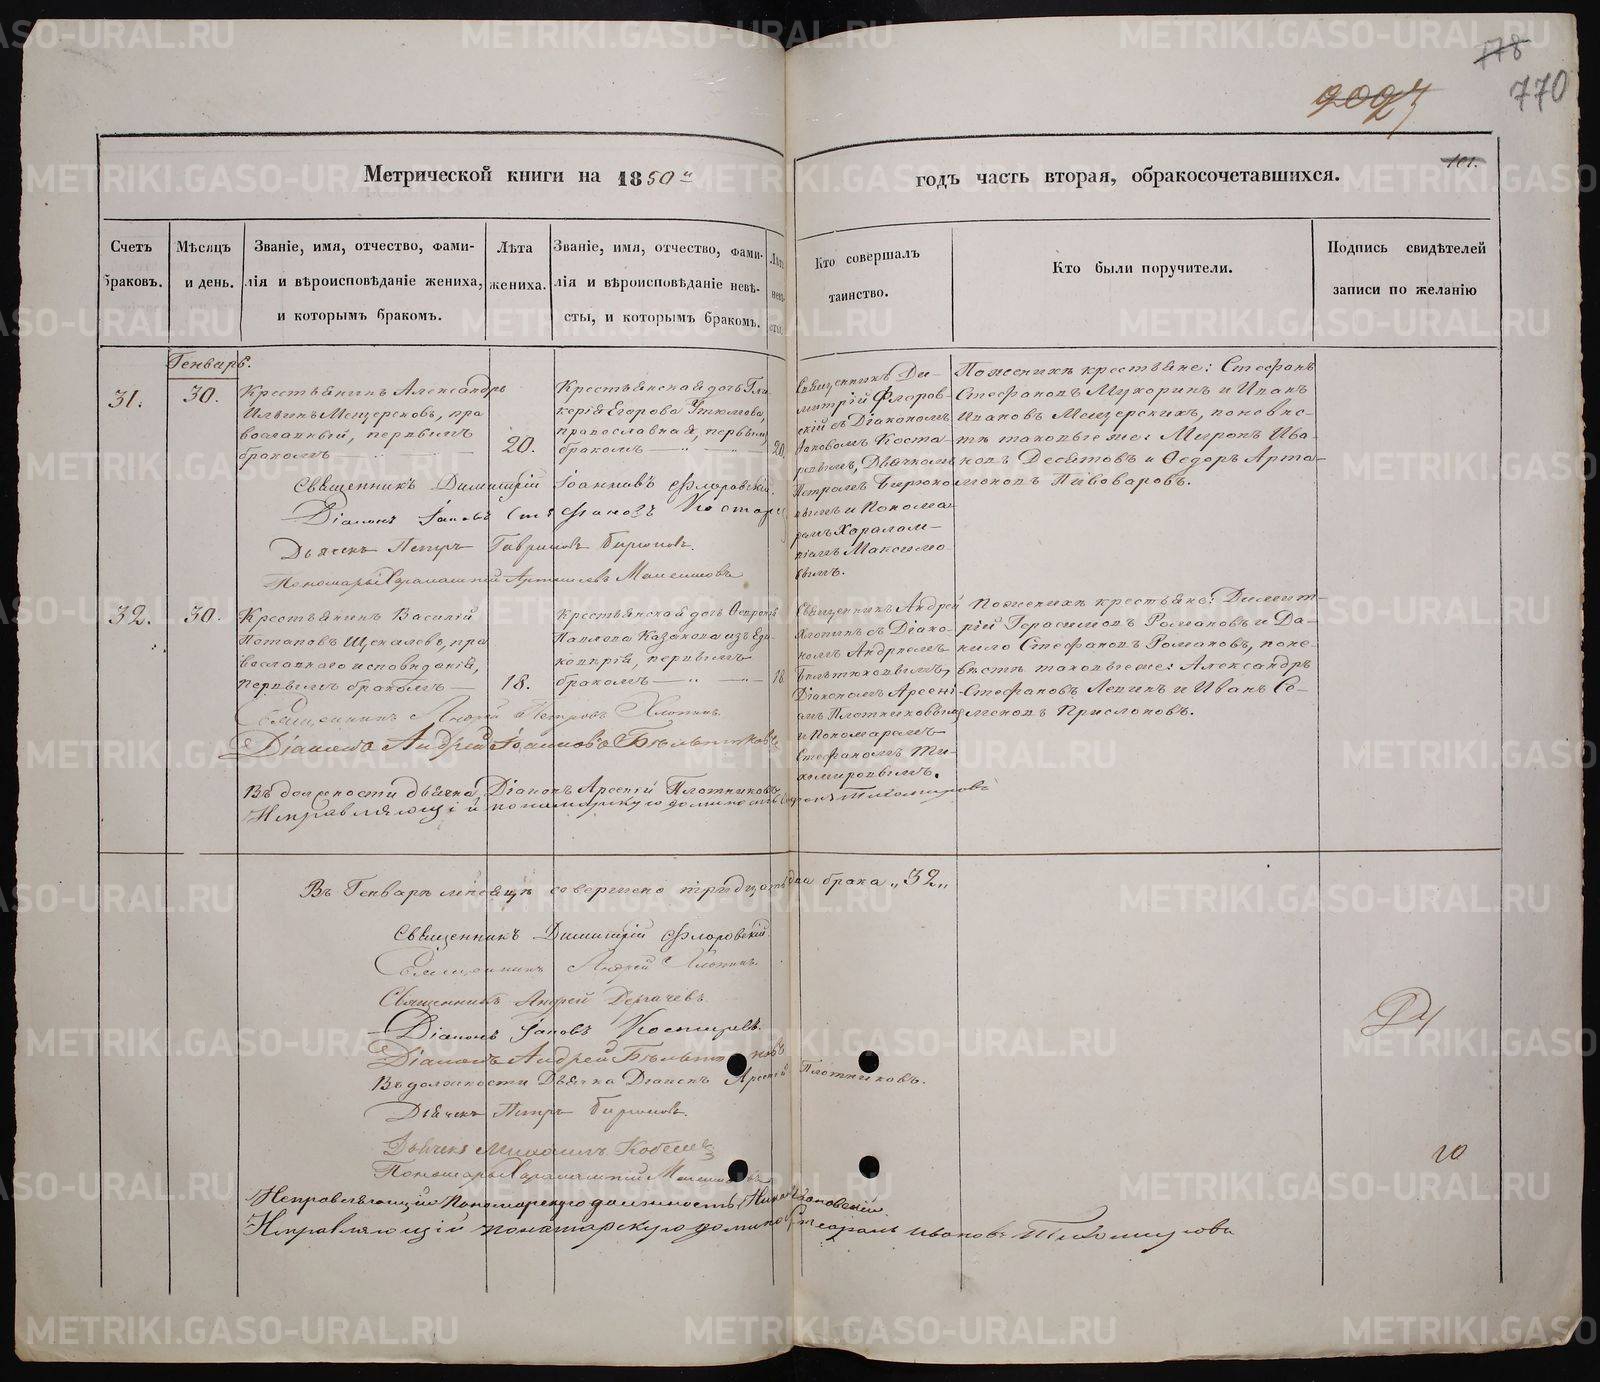 778
770
2027
101.
Метрической книги на 1850й
годъ часть вторая, обракосочетавшихся.
Счетъ браковъ.
Мѣсяцъ и день.
Званіе, имя, отчество, фами-
лія и вѣроисповѣданіе жениха,
и которымъ бракомъ.
Лѣта
жениха.
Званіе, имя, отчество, фами-
лія и вѣроисповѣданіе невѣ-
сты, и которымъ бракомъ.
Лѣта
невѣ-
сты.
Кто совершалъ
таинство.
Кто были поручители.
Подпись свидѣтелей
записи по желанію
Генварь.
31.
30.
Крестьянинъ Александръ
Ильинъ Мещерсковъ, пра
вославный, первымъ
бракомъ
20.
Крестьянская дочь Гли
керія Егорова Утюмова,
православная, первым
бракомъ
20
Священникъ Ди-
митрій Флоров-
скій съ Діакономъ
Іаковомъ Коста-
ревымъ, Дьячкомъ
Петромъ Бирюко
вымъ и Понома
ремъ Харалам-
піемъ Максимо
вымъ.
Поженихѣ крестьяне: Стефанъ
Стефановъ Мухоринъ и Иванъ
Ивановъ Мещерскихъ, поневѣс-
тѣ таковые же: Миронъ Ива-
новъ Десятовъ и Ѳедоръ Арта-
моновъ Пивоваровъ.
Священникъ Димитрій Іоанновъ Флоровскій.
Діаконъ Іаковъ Стефановъ Костарев
Дьячекъ Петръ Гавриловъ Бирюковъ.
Пономарь Харалампій Артемьевъ Максимовъ
32.
30.
Крестьянинъ Василій
Потаповъ Щекалевъ, пра
вославнаго исповѣданія,
первымъ бракомъ
18.
Крестьянская дочь
Павлова Казакова изъ Еди
новѣрія, первымъ
бракомъ
18
Священникъ Андрей
Хлопинъ съ Діако-
номъ Андреемъ
Бѣльтюковымъ,
Діакономъ Арсені-
емъ Плотниковым
и Пономаремъ
Стефаномъ Ти-
хомировымъ.
Поженихѣ крестьяне: Димит-
рій Герасимовъ Романовъ и Да-
нило Стефановъ Романовъ, поне-
вѣстѣ таковые же: Александръ
Стефановъ Лепинъ и Иванъ Се-
меновъ Прислоновъ.
Священникъ Андрей Петровъ Хлопинъ.
Діаконъ Андрей Іоанновъ Бѣльтюковъ
Въ должности дьячка, Діаконъ Арсеній Плотниковъ
Исправляющій пономарскую должность Стефанъ Тихомировъ
Въ Генварѣ мѣсяцѣ совершено тридцать два брака „32„
Священникъ Димитрій Флоровскій.
Священникъ Андрей Хлопинъ.
Священникъ Андрей Дергачевъ
Діаконъ Іаковъ Костаревъ.
Діаконъ Андрей Бѣльтюковъ
Въ должности Дьячка Діаконъ Арсеній Плотниковъ.
Дьячекъ Петръ Бирюковъ.
Дьячекъ Михаилъ
Пономарь Харалампій Максимовъ
Исправляющій Пономарскую должность
Исправляющій пономарскую должность Стефанъ Ивановъ Тихомировъ
METRIKI.GASO-URAL.RU